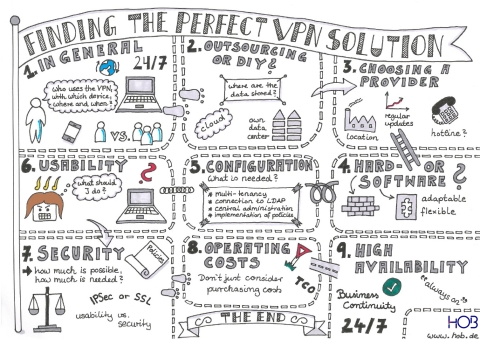 FINDING THE PERFECT VPN SOLUTION
1. IN GENERAL
24/7
Who uses the VPN,
with which device,
where and when?
VS.
2. OUTSOURCING
OR DIY?
where are the
data stored?
cloud
own
data
center
3. CHOOSING A
PROVIDER
location
regular
updates
hotline?
6. USABILITY
?
what should
I do?
5. CONFIGURATION
What is needed?
• multi-tenancy
• connection to LDAP
• central administration
• implementation of policies
4. HARD- OR
SOFTWARE?
adaptable
flexible
7. SECURITY
→ how much is possible,
how much is needed?
Policies
IPSec or SSL
usability vs.
security
8. OPERATING
COSTS
Don't just consider
purchasing costs
TCO
THE END
9. HIGH
AVAILABILITY
"always on"
Business
Continuity
24/7
HOB
www.hob.de